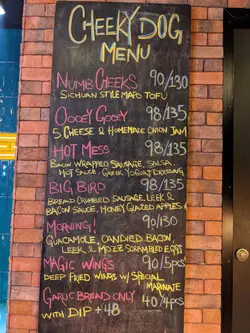 CHEEKY DOG
MENU
NUMB CHEEKS 90/130
SICHUAN STYLE MAPO TOFU
OOOEY GOOEY 98/135
5 CHEESE & HOMEMADE ONION JAM
HOT MESS 98/135
BACON WRAPPED SAUSAGE, SALSA,
HOT SAUCE, GREEK YOGHURT DRESSING
BIG BIRD 98/135
BREAD CRUMBED SAUSAGE, LEEK &
BACON SAUCE, HONEY GLAZED APPLES
MORNING! 90/130
GUACAMOLE, CANDIED BACON,
LEEK & MOZZ SCRAMBLED EGGS
MAGIC WINGS 90/5pcs
DEEP FRIED WINGS W/ SPECIAL
MARINATE
GARLIC BREAD ONLY 40/4pcs
WITH DIP +48